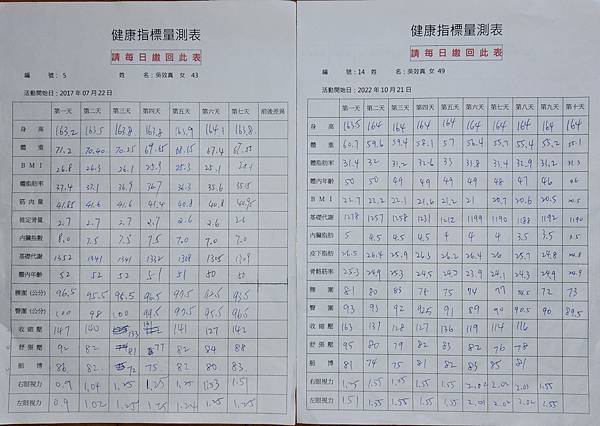 健康指標量測表
請每日繳回此表
編 號：5 姓 名：吳效真 女 43
活動開始日：2017 年 07 月 22 日
第一天 第二天 第三天 第四天 第五天 第六天 第七天 前後差異
身 高 163.2 163.5 163.8 163.8 163.9 164.1 163.8
體 重 71.2 70.40 70.25 69.65 68.15 67.4 67.55
B M I 26.8 26.3 26.1 25.9 25.3 25.1 25.1
體脂肪率 37.4 37.1 36.9 36.7 36.3 35.6 35.5
筋 肉 量 41.85 41.6 41.6 41.4 40.8 40.8 40.95
推定骨量 2.7 2.7 2.7 2.7 2.6 2.6 2.6
內臟指數 8.0 7.5 7.5 7.5 7.0 7.0 7.0
基礎代謝 1352 1341 1341 1332 1308 1305 1309
體內年齡 52 52 52 51 51 50 50
腰圍 (公分) 96.5 95.5 95.5 96.5 93.5
臀圍 (公分) 100 98 100
收 縮 壓 147 140 133 141 127 142
舒 張 壓 92 82 81 77 82 84 88
脈 博 86 82 72 75 82 80 83
右眼視力 0.9 1.04 1.25 1.25 1.25 1.53 1.51
左眼視力 0.9 1.02 1.25 1.25 1.24 1.25 1.25
健康指標量測表
請每日繳回此表
編 號：14 姓 名：吳效真 女 49
活動開始日：2022 年 10 月 21 日
第一天 第二天 第三天 第四天 第五天 第六天 第七天 第八天 第九天 第十天
身 高 163.5 164 164 164 164 164 164 164 164 164
體 重 60.7 59.6 59.4 58.1 57 56.4 55.7 55.4 55.2 55.1
體脂肪率 31.4 32 31.2 32.6 33 31.8 33.4 32.9 31.2 31.3
體內年齡 50 50 49 49 49 49 48 47 46 46
B M I 22.7 22.2 22.1 21.6 21.2 21 20.7 20.6 20.5 20.5
基礎代謝 1278 1257 1258 1231 1212 1199 1190 1188 1192 1190
內臟脂肪 5 4.5 4.5 4.5 4 4 4 3.5 3.5 3.5
皮下脂肪 26.5 26.4 25.9 26.3 26.2 26.4 26 25.7 24.8 24.8
骨骼肌率 25.3 24.9 25.3 24.5 24.2 23.9 24.1 24.3 24.9 24.9
腰 圍 81 80 83 78 75 74 77 74.5 72 73
臀 圍 93 93 92 92.5 91 89 90 90.5 90 89.5
收 縮 壓 163 131 128 127 136 119 114 116
舒 張 壓 95 80 79 82 83 82 76 78
脈 博 81 74 75 81 82 83 85 81
右眼視力 1.25 1.55 1.55 1.55 1.55 2.02 2.02 2.03 1.55
左眼視力 1.51 1.55 1.55 1.55 1.55 2.01 2.02 2.02 1.55